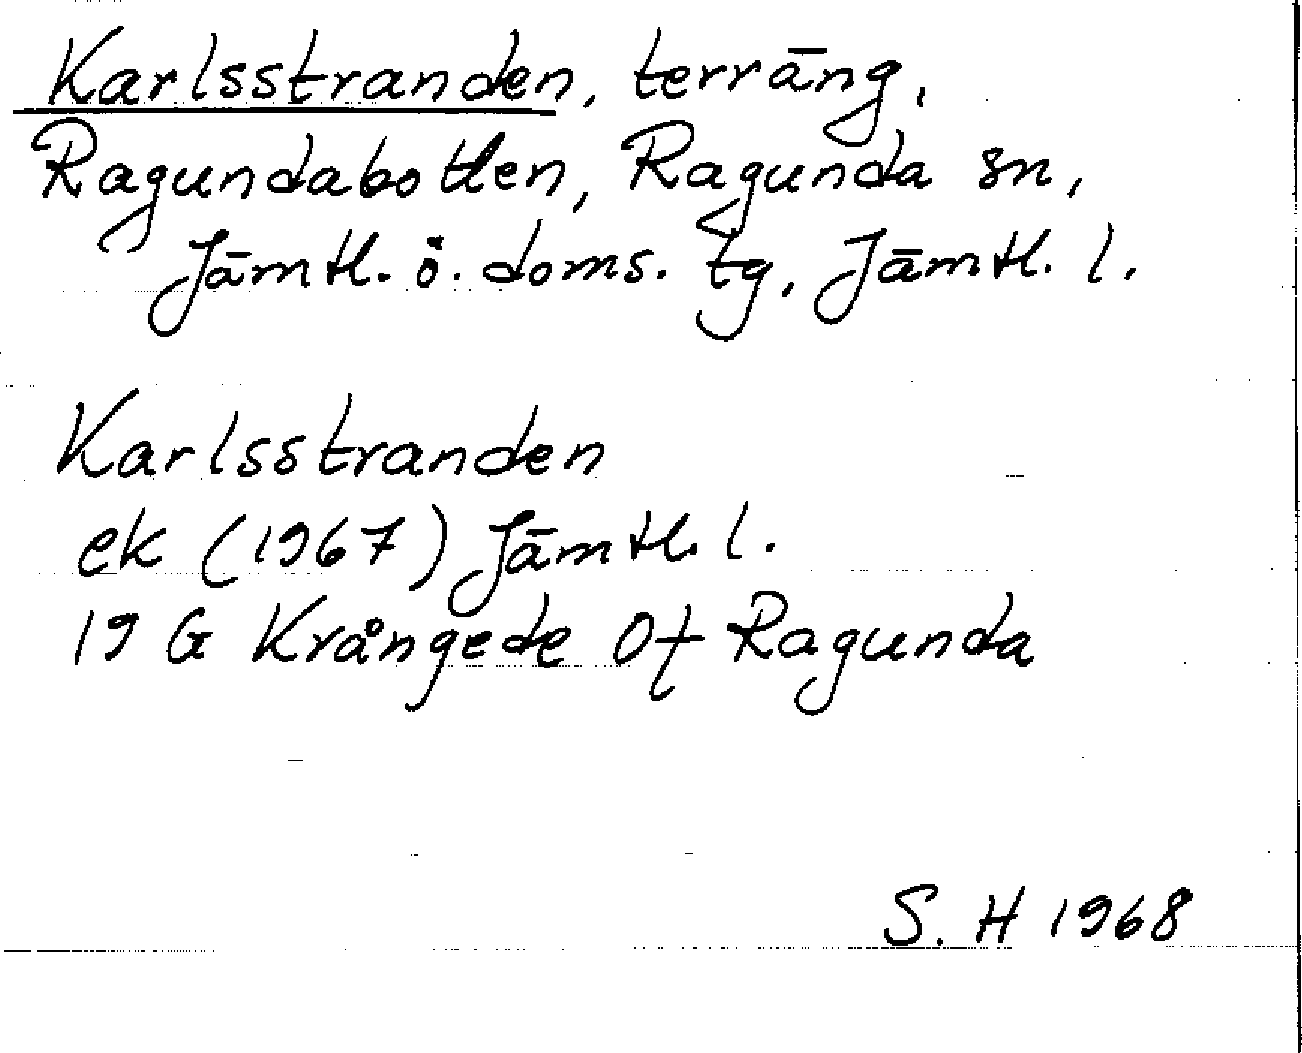 Karlsstranden, terräng,
Ragundabotten, Ragunda sn,
Jämtl. ö. doms. tg, Jämtl. l.
Karlsstranden
ek (1967) Jämtl. l.
19 G Krångede Of Ragunda
S. H 1968